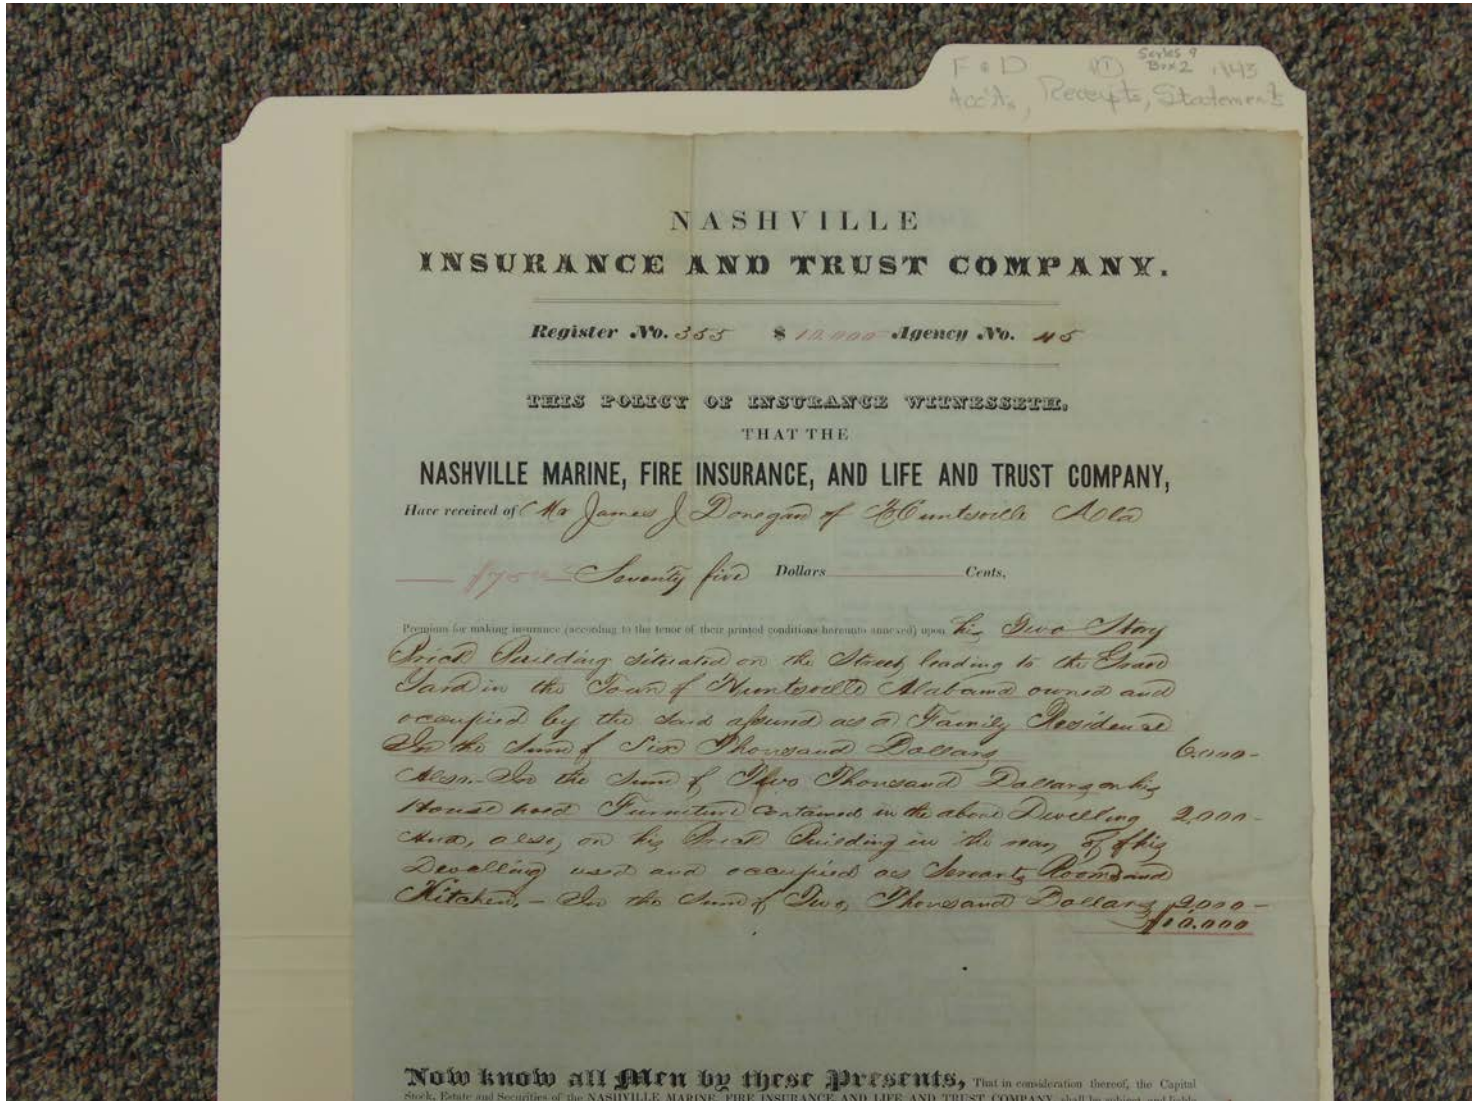 F & D ① Series 9 Box 2 1843
Acc'ts, Receipts, Statements
NASHVILLE
INSURANCE AND TRUST COMPANY.
Register No. 355 $ 10.000 Agency No. 45
THIS POLICY OF INSURANCE WITNESSETH,
THAT THE
NASHVILLE MARINE, FIRE INSURANCE, AND LIFE AND TRUST COMPANY,
Have received of Mr James J Donegan of Huntsville Ala
Seventy five Dollars Cents,
Premium for making insurance (according to the tenor of their printed conditions hereunto annexed) upon his Two Story
Brick Building situated on the Street leading to the Grave
Yard in the Town of Huntsville Alabama owned and
occupied by the said assured as a Family Residence
In the Sum of Six Thousand Dollars 6.000-
Also. In the Sum of Two Thousand Dollars on his
House hold Furniture contained in the above Dwelling 2,000-
And, also, on his Brick Building in the rear of his
Dwelling used and occupied as Servants Rooms and
Kitchen, - In the Sum of Two Thousand Dollars 2,000-
$10.000
Now know all Men by these Presents, That in consideration thereof, the Capital
Stock, Estate and Securities of the NASHVILLE MARINE, FIRE INSURANCE AND LIFE AND TRUST COMPANY, shall be subject and liable